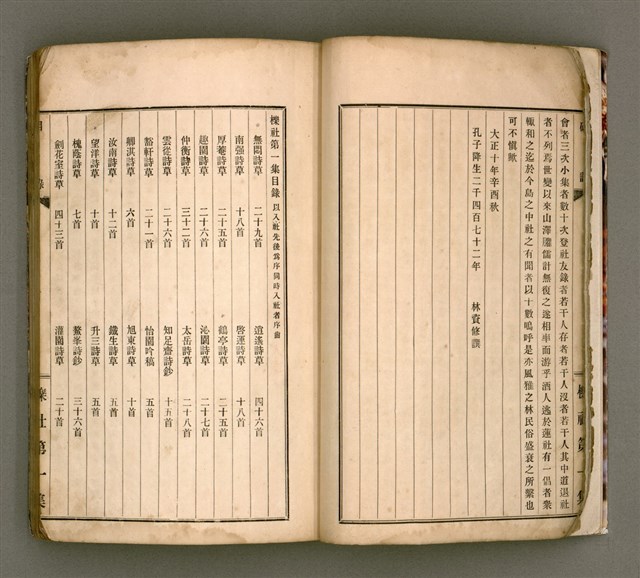 會者三次小集者數十次登社友錄者若干人存者若干人沒者若干人其中道退社
者不列焉世變以來山澤臞儒計無復之遂相率而游乎酒人逃於蓮社有一倡者衆
輒和之迄於今島之中社之有聞者以十數嗚呼是亦風雅之林民俗盛衰之所繫也
可不愼歟
大正十年辛酉秋
孔子降生二千四百七十二年 林資修譔
櫟社第一集
櫟社第一集目錄 以入社先後爲序同時入社者序齒
無悶詩草 二十九首 逍遙詩草 四十六首
南强詩草 十八首 啓運詩草 十八首
厚菴詩草 二十五首 鶴亭詩草 二十一首
趣園詩草 二十六首 沁園詩草 二十七首
仲衡詩草 三十二首 太岳詩草 二十八首
雲從詩草 二十六首 知足齋詩鈔 十五首
豁軒詩草 二十一首 怡園吟稿 五首
卿淇詩草 六首 旭東詩草 十首
汝南詩草 十二首 鐵生詩草 五首
望洋詩草 十首 升三詩草 五首
槐蔭詩草 七首 鰲峯詩鈔 三十六首
劍花室詩草 四十三首 灌園詩草 二十首
櫟社第一集